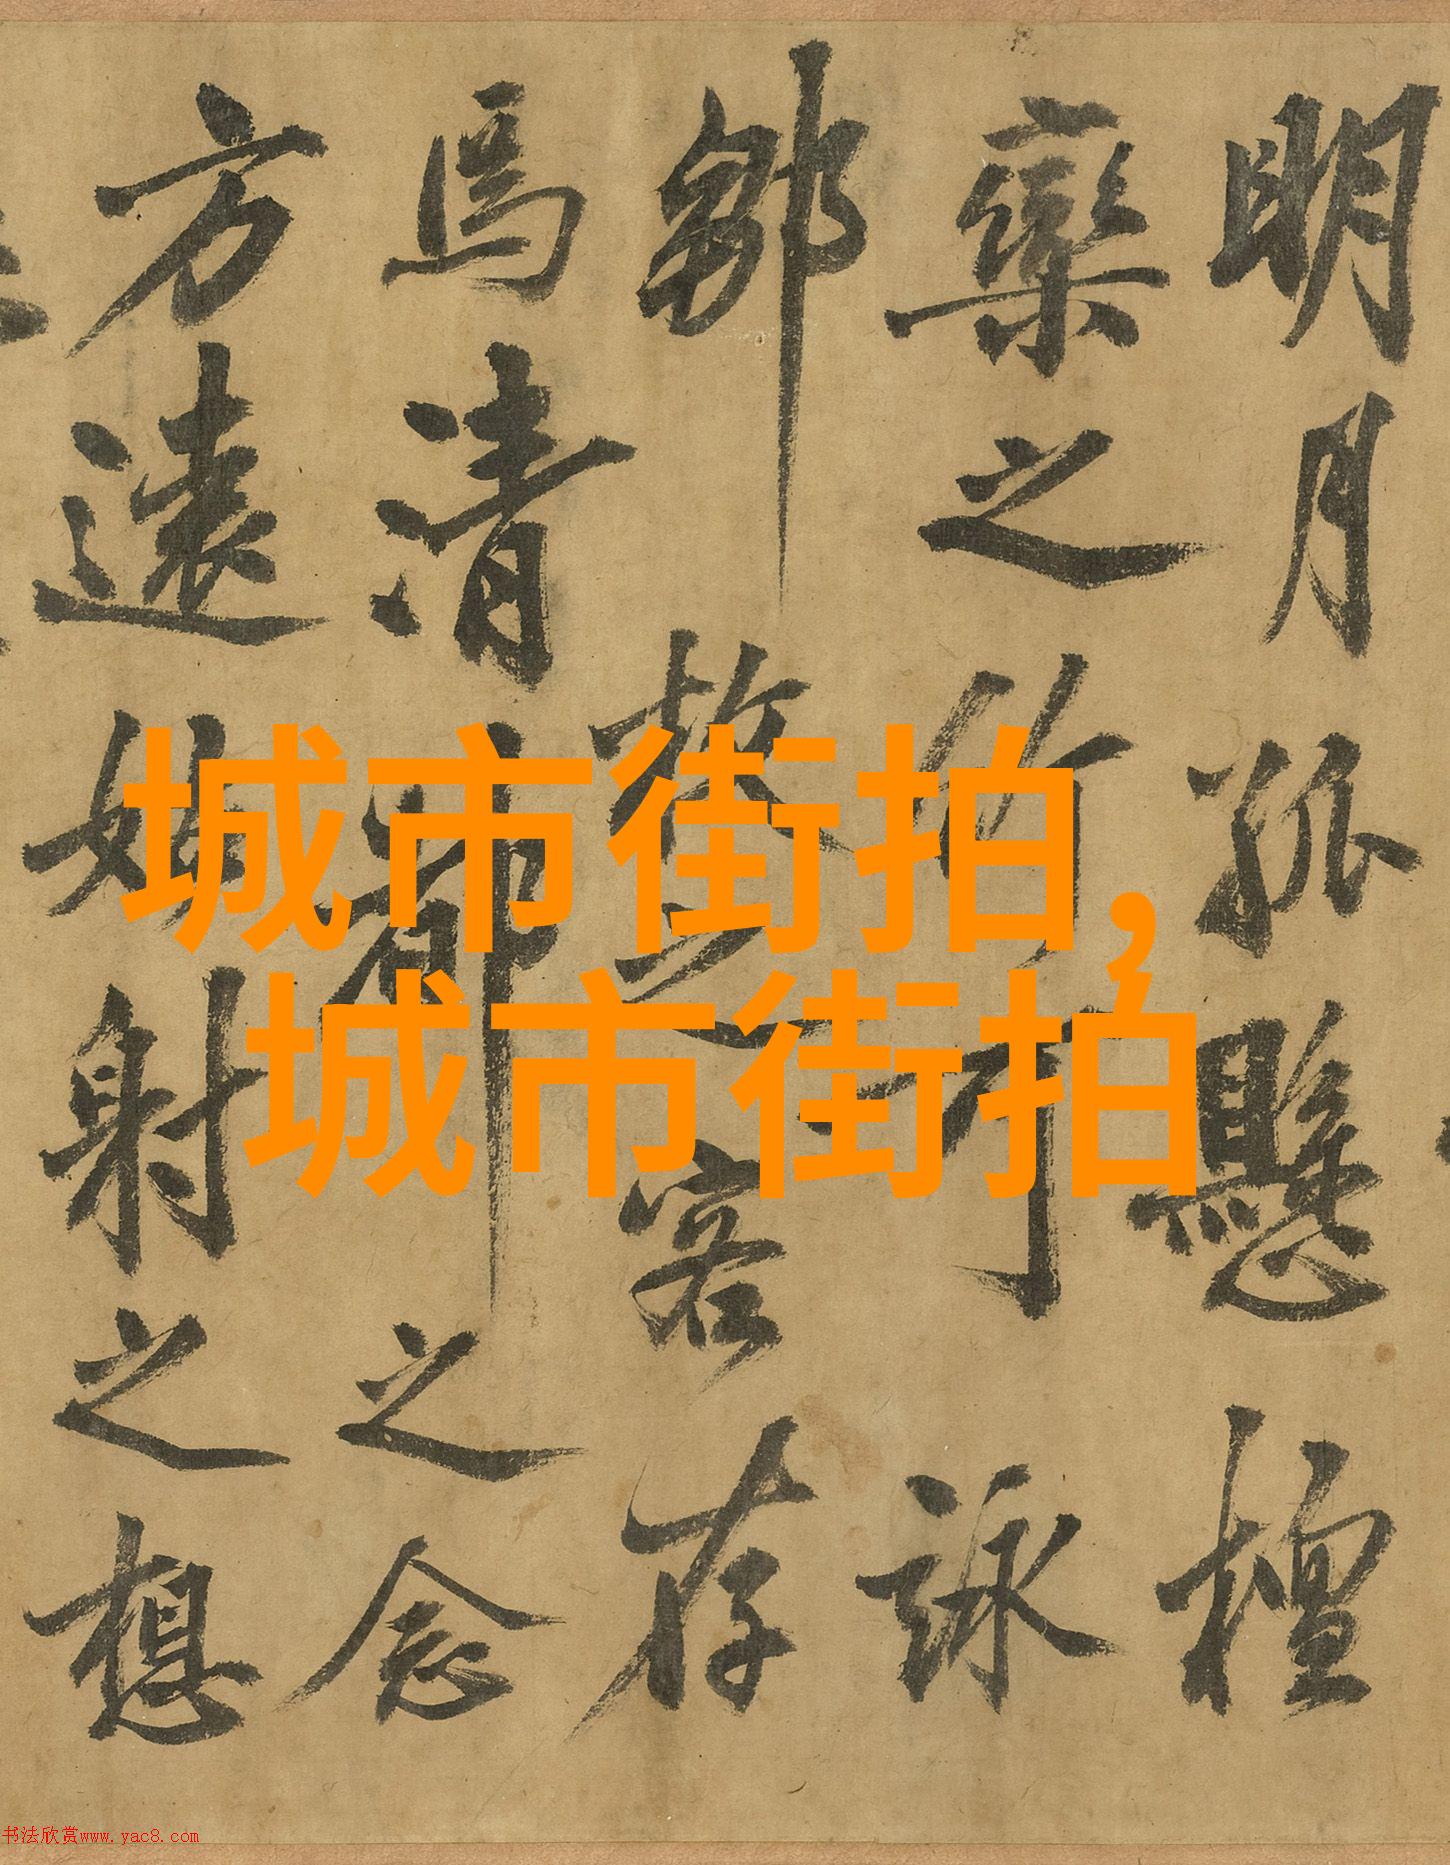 明月孤懸檀
欒之竹可詠
鄒枚之客存
焉清都之念
方遠姑射之想
城市街拍,
城市街拍
书法欣赏www.yac8.com